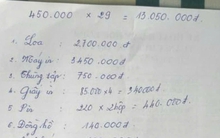 450.000 × 29 = 13.050.000đ
1. Loa : 2.700.000đ
2. : 3.450.000đ
3. Thùng : 750.000đ
4. Giấy : 85.000 × 4 = 340.000đ
5. Pin : 220 × 2 = 440.000đ
6. Đồng hồ : 140.000đ